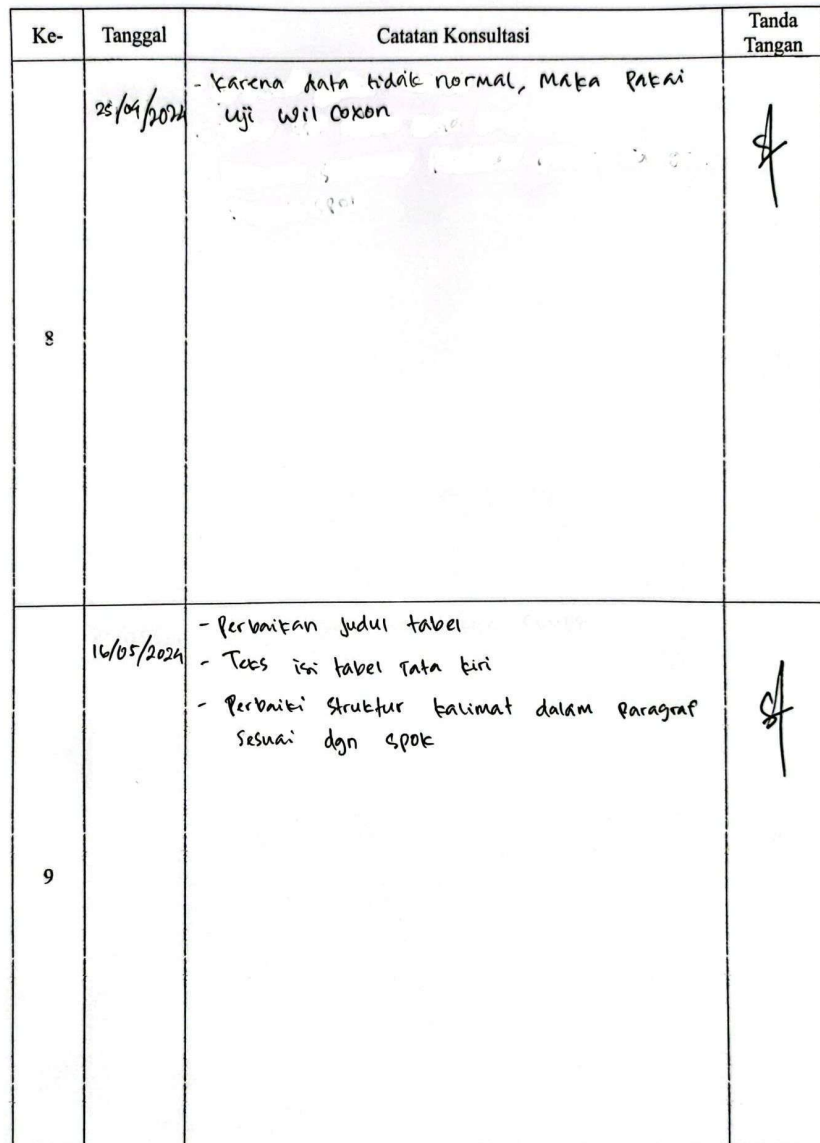 Ke- Tanggal Catatan Konsultasi Tanda Tangan
8
25/04/2024
- Karena data tidak normal, Maka Pakai
uji Wil Coxon
9
16/05/2024
- Perbaikan Judul tabel
- Teks isi tabel rata kiri
- Perbaiki Struktur kalimat dalam Paragraf
Sesuai dgn SPOK